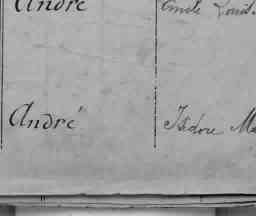 André Emile Louis
André Isidore Ma